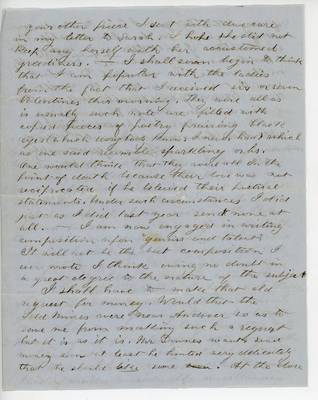 your other piece I sent with due care
in my letter to Sarah. I hope she did not
keep any herself with her accustomed
greediness. — I shall soon begin to think
that I am popular with the ladies
from the fact that I received six or seven
Valentines this morning. They were all as
is usually such note are filled with
copied pieces of poetry praising black
eyes (which long lack thine, I wish I had) which
as one said resemble sparkling orbs.
One would think that they were all on the
point of death because their love was not
reciprocated if he believed their
statements. Under such circumstances I did
just as I did last year send none at
all. — I am now engaged in writing
composition upon "genius and talent"
It will not be the best composition I
ever wrote I think owing no doubt in
a great degree to the nature of the subject
I shall have to make that old
request for money. Would that the
Gold Mines were near Andover so as to
save me from making such a request
but it is as it is. Mr Downes wants some
money soon at least he hinted very delicately
that he should like some. At the close